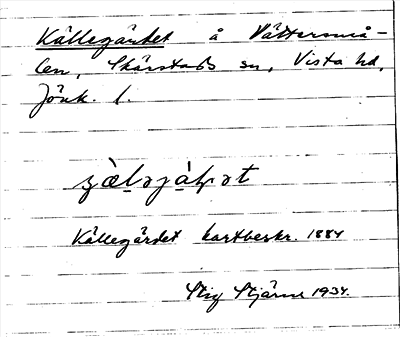 Källegärdet å Vättersmå-
len, Skärstads sn, Vista hd,
Jönk. l.
Källegärdet kartbeskr. 1884
Stig Stjärne 1934.